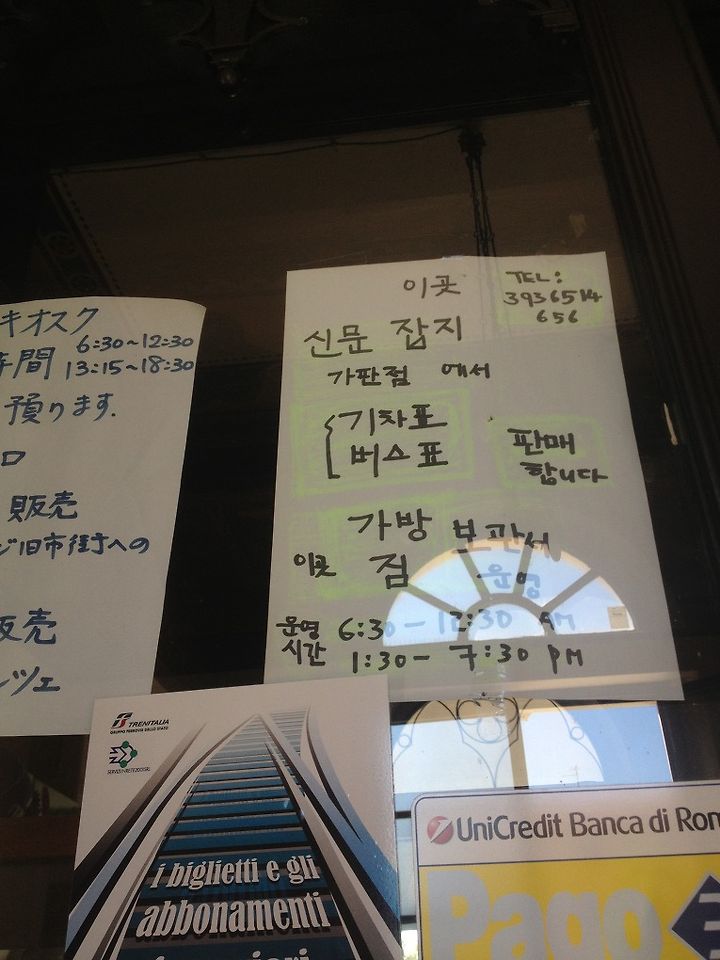 キオスク
時間 6:30~12:30
13:15~18:30
預ります.
口
販売
ジ旧市街への
販売
ルツェ
이곳
TEL:
3936514
656
신문 잡지
가판점 에서
기차표
버스표
판매
합니다
가방 보관
이곳 짐 운영
운영 6:30 - 12:30 AM
시간 1:30 - 7:30 PM
TRENITALIA
GRUPPO FERROVIE DELLO STATO
i biglietti e gli
abbonamenti
UniCredit Banca di Rom
Pago